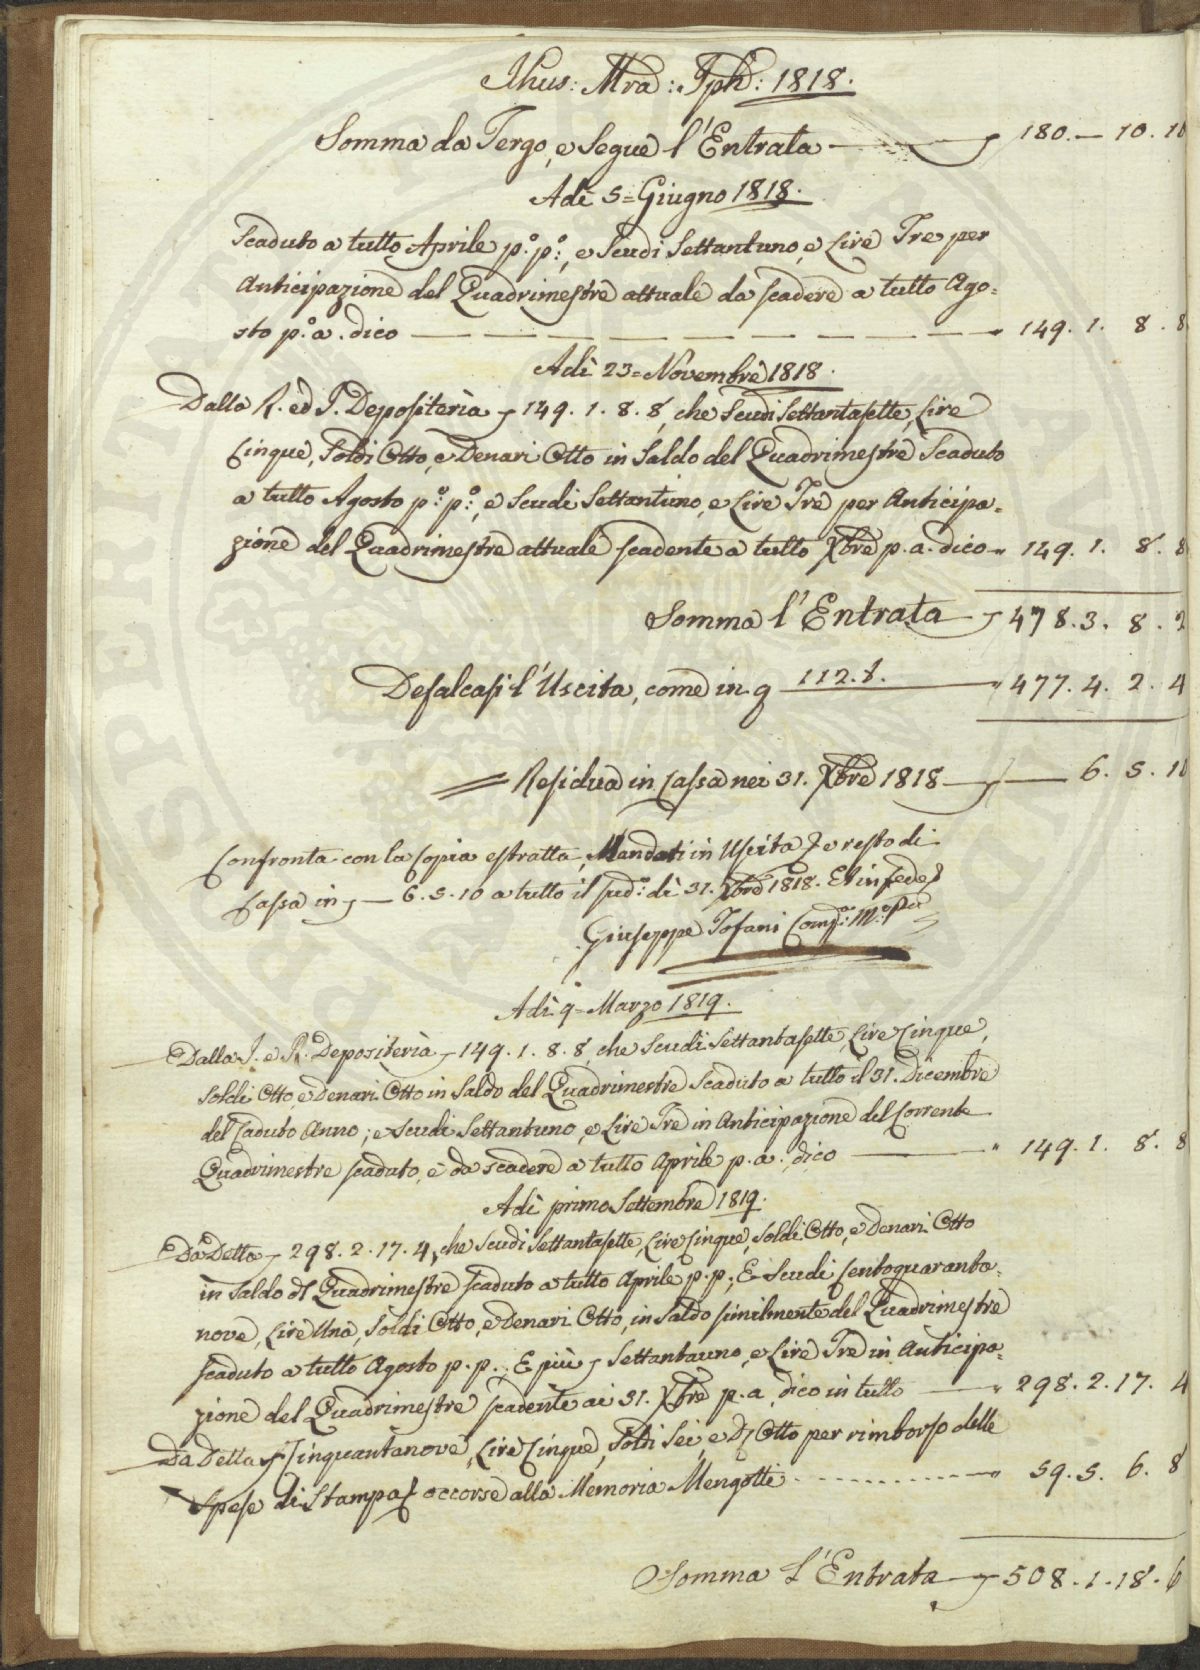 Jhus: Mra: Jph: 1818.
Somma da Tergo, e Segue l'Entrata 180. — 10. 10
Adì 5 = Giugno 1818.
Scaduto a tutto Aprile p.º p.º, e Scudi Settantuno, e Lire Tre per
Anticipazione del Quadrimestre attuale da scadere a tutto Ago=
sto p.º a. dico — — — — — — — " 149. 1. 8. 8
Adì 23 = Novembre 1818.
Dalla R. ed I. Depositeria 149. 1. 8. 8, che Scudi Settantasette, Lire
Cinque, Soldi Otto, e Denari Otto in Saldo del Quadrimestre Scaduto
a tutto Agosto p.º p.º, e Scudi Settantuno, e Lire Tre per Anticipa=
zione del Quadrimestre attuale scadente a tutto Xbre p. a. dico " 149. 1. 8. 8
Somma l'Entrata 478. 3. 8. 2
Defalcasi l'Uscita, come in 112.8. " 477. 4. 2. 4
Residua in Cassa nei 31. Xbre 1818 — 6. 5. 10
Confronta con la Copia estratta, Mandati in Uscita, e resto di
Cassa in — 6. 5. 10 a tutto il sud.º dì 31. Xbre 1818. Et in fede
Giuseppe Tofani
Adì 9 = Marzo 1819.
Dalla I. e R. Depositeria 149. 1. 8. 8, che Scudi Settantasette, Lire Cinque,
Soldi Otto, e Denari Otto in Saldo del Quadrimestre Scaduto a tutto il 31. Dicembre
del Caduto Anno; e Scudi Settantuno, e Lire Tre in Anticipazione del Corrente
Quadrimestre scaduto, e da scadere a tutto Aprile p. a., dico " 149. 1. 8. 8
Adì primo Settembre 1819.
Da Detta 298. 2. 17. 4, che Scudi Settantasette, Lire Cinque, Soldi Otto, e Denari Otto
in Saldo dl Quadrimestre scaduto a tutto Aprile p. p.; E Scudi Centoquaranta=
nove, Lire Una, Soldi Otto, e Denari Otto, in Saldo similmente del Quadrimestre
scaduto a tutto Agosto p. p.; E più Settantauno, e Lire Tre in Anticipa=
zione del Quadrimestre scadente ai 31. Xbre p. a, dico in tutto " 298. 2. 17. 4
Da Detta Cinquantanove, Lire Cinque, Soldi Sei, e Otto per rimborso delle
Spese di Stampa occorse alla Memoria Mengotti " 59. 5. 6. 8
Somma l'Entrata 508. 1. 18. 6